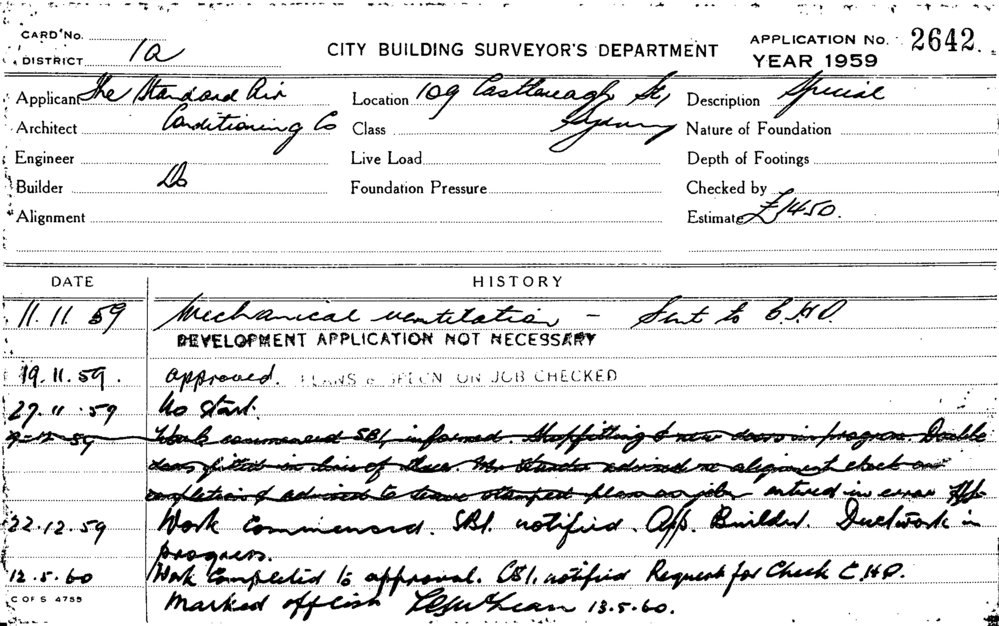 CARD No.
DISTRICT 1a
CITY BUILDING SURVEYOR'S DEPARTMENT
APPLICATION No. 2642.
YEAR 1959
Applicant The Standard Air
Location 109 Castlereagh St,
Description Special
Architect Conditioning Co
Class Sydney
Nature of Foundation
Engineer
Live Load
Depth of Footings
Builder Do
Foundation Pressure
Checked by
Alignment
Estimate £1450.
DATE HISTORY
11.11.59 Mechanical ventilation – Sent to C.H.O.
DEVELOPMENT APPLICATION NOT NECESSARY
19.11.59. approved. PLANS & SPECN ON JOB CHECKED
27.11.59 No start.
9-12-59 Work commenced SBI, informed. Shopfitting & new doors in progress. Double
doors fitted in lieu of three. Mr advised re alignment check on
completion & advised to leave stamped plans on job entered in error
22.12.59 Work commenced. SBI. notified. App. Builder. Ductwork in
progress.
12.5.60 Work completed to approval. SBI. notified Request for Check C.H.O.
C OF S 4755
Marked off list 13.5.60.